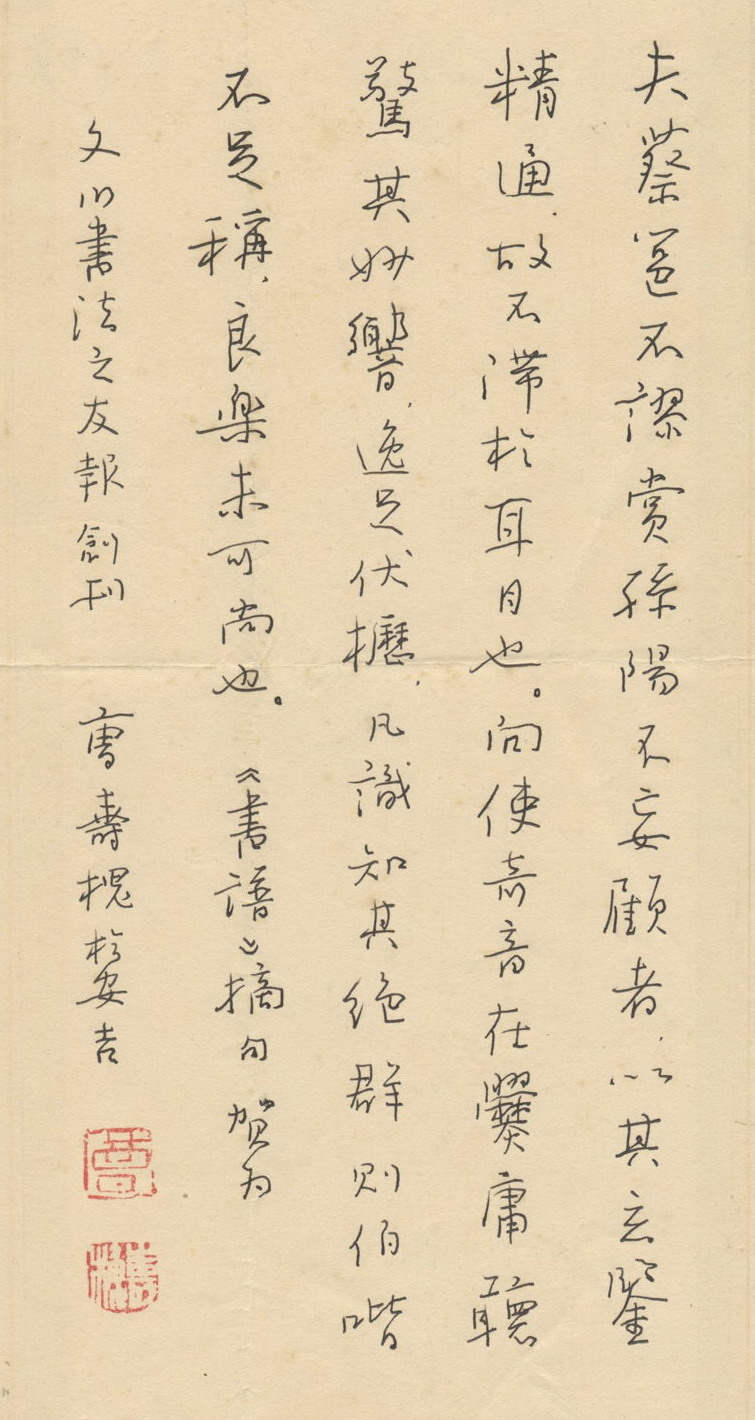 夫蔡邕不謬賞孫陽不妄顧者,以其玄鑒
精通,故不滯於耳目也。向使奇音在爨庸聽
驚其妙響,逸足伏櫪,凡識知其絕群則伯喈
不足稱,良樂未可尚也。《書譜》摘句 贺为
文川書法之友報創刊 曹壽槐於安吉